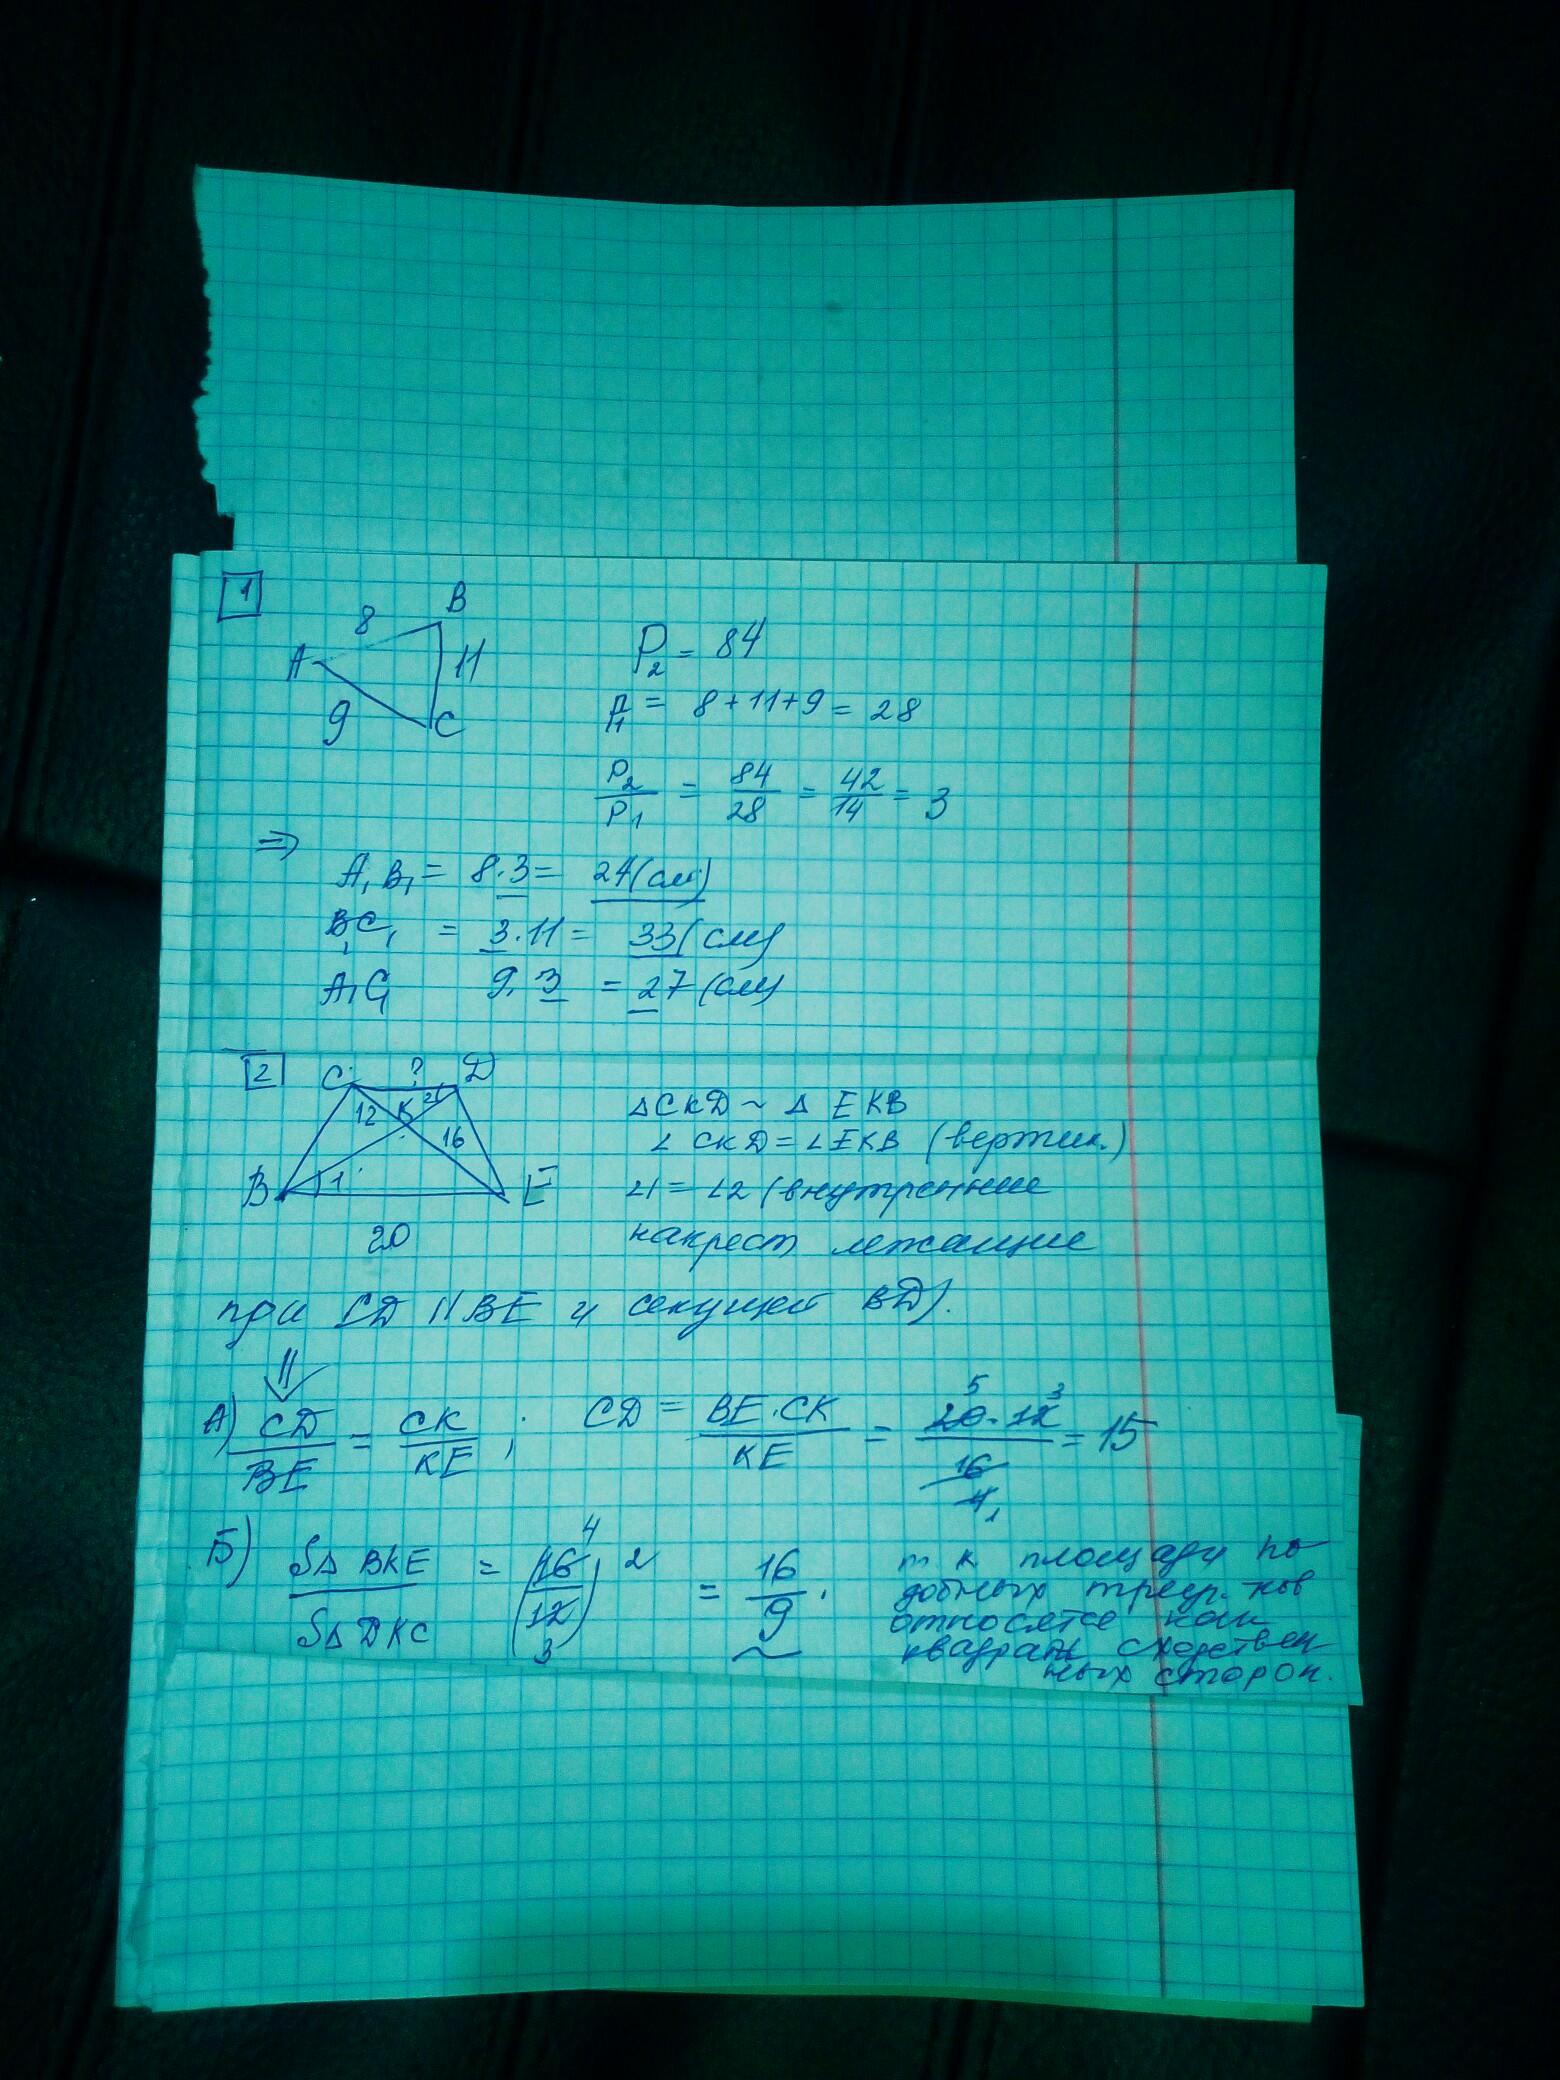 1
B
8
A
11
9
C
P₂ = 84
P₁ = 8+11+9 = 28
P₂/P₁ = 84/28 = 42/14 = 3
⇒
A₁B₁ = 8·3 = 24(см)
B₁C₁ = 3·11 = 33(см)
A₁C₁ 9·3 = 27(см)
2
C ? D
12 K 2
16
B 1 E
20
△CKD ~ △EKB
∠CKD = ∠EKB (вертик.)
∠1 = ∠2 (внутренние
накрест лежащие
при CD || BE и секущей BD).
⇓
А) CD/BE = CK/KE ; CD = BE·CK/KE = 20·12/16 = 15
5 3
4 1
Б) S△BKE/S△DKC = (16/12)² = 16/9 .
4
3
т к площади по
добных треуг.ков
относятся как
квадраты сходствен
ных сторон.